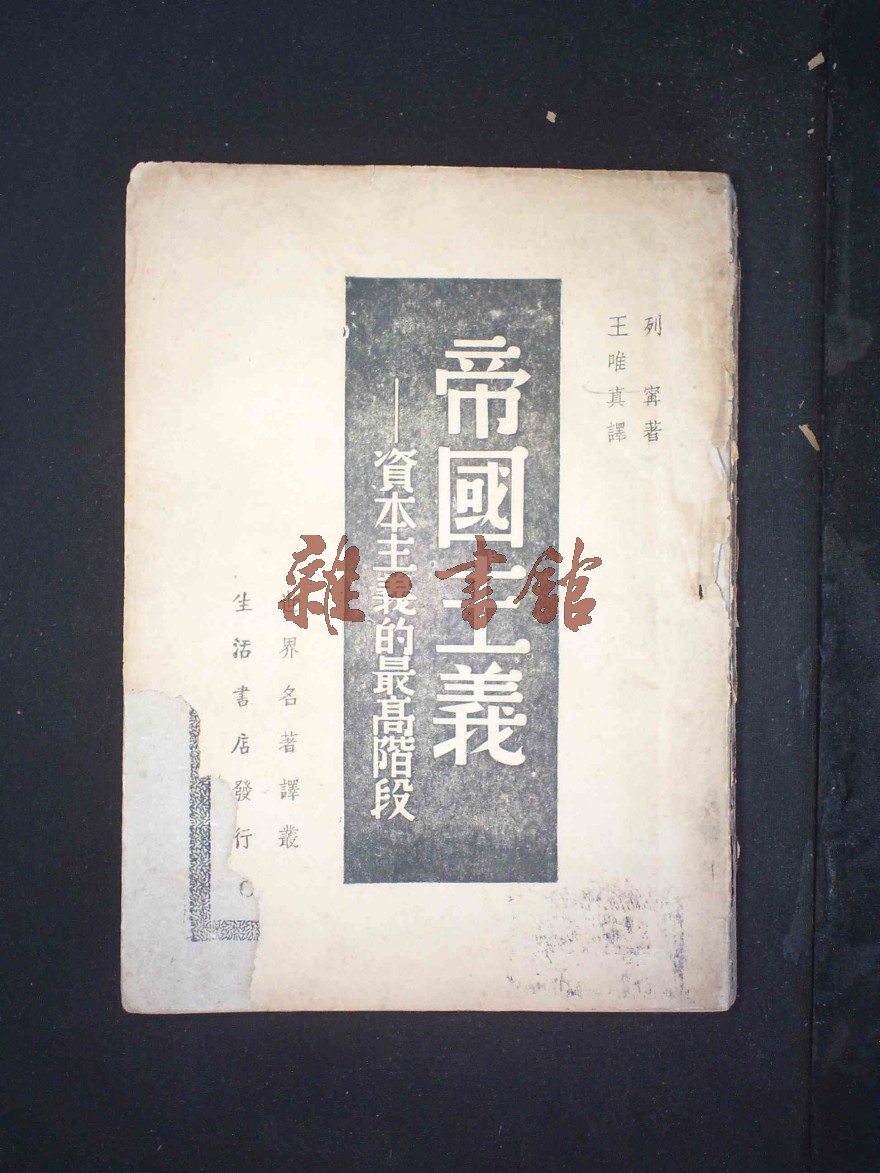 列寧著
王唯真譯
帝國主義
——資本主義的最高階段
世界名著譯叢
生活書店發行
雜·書館